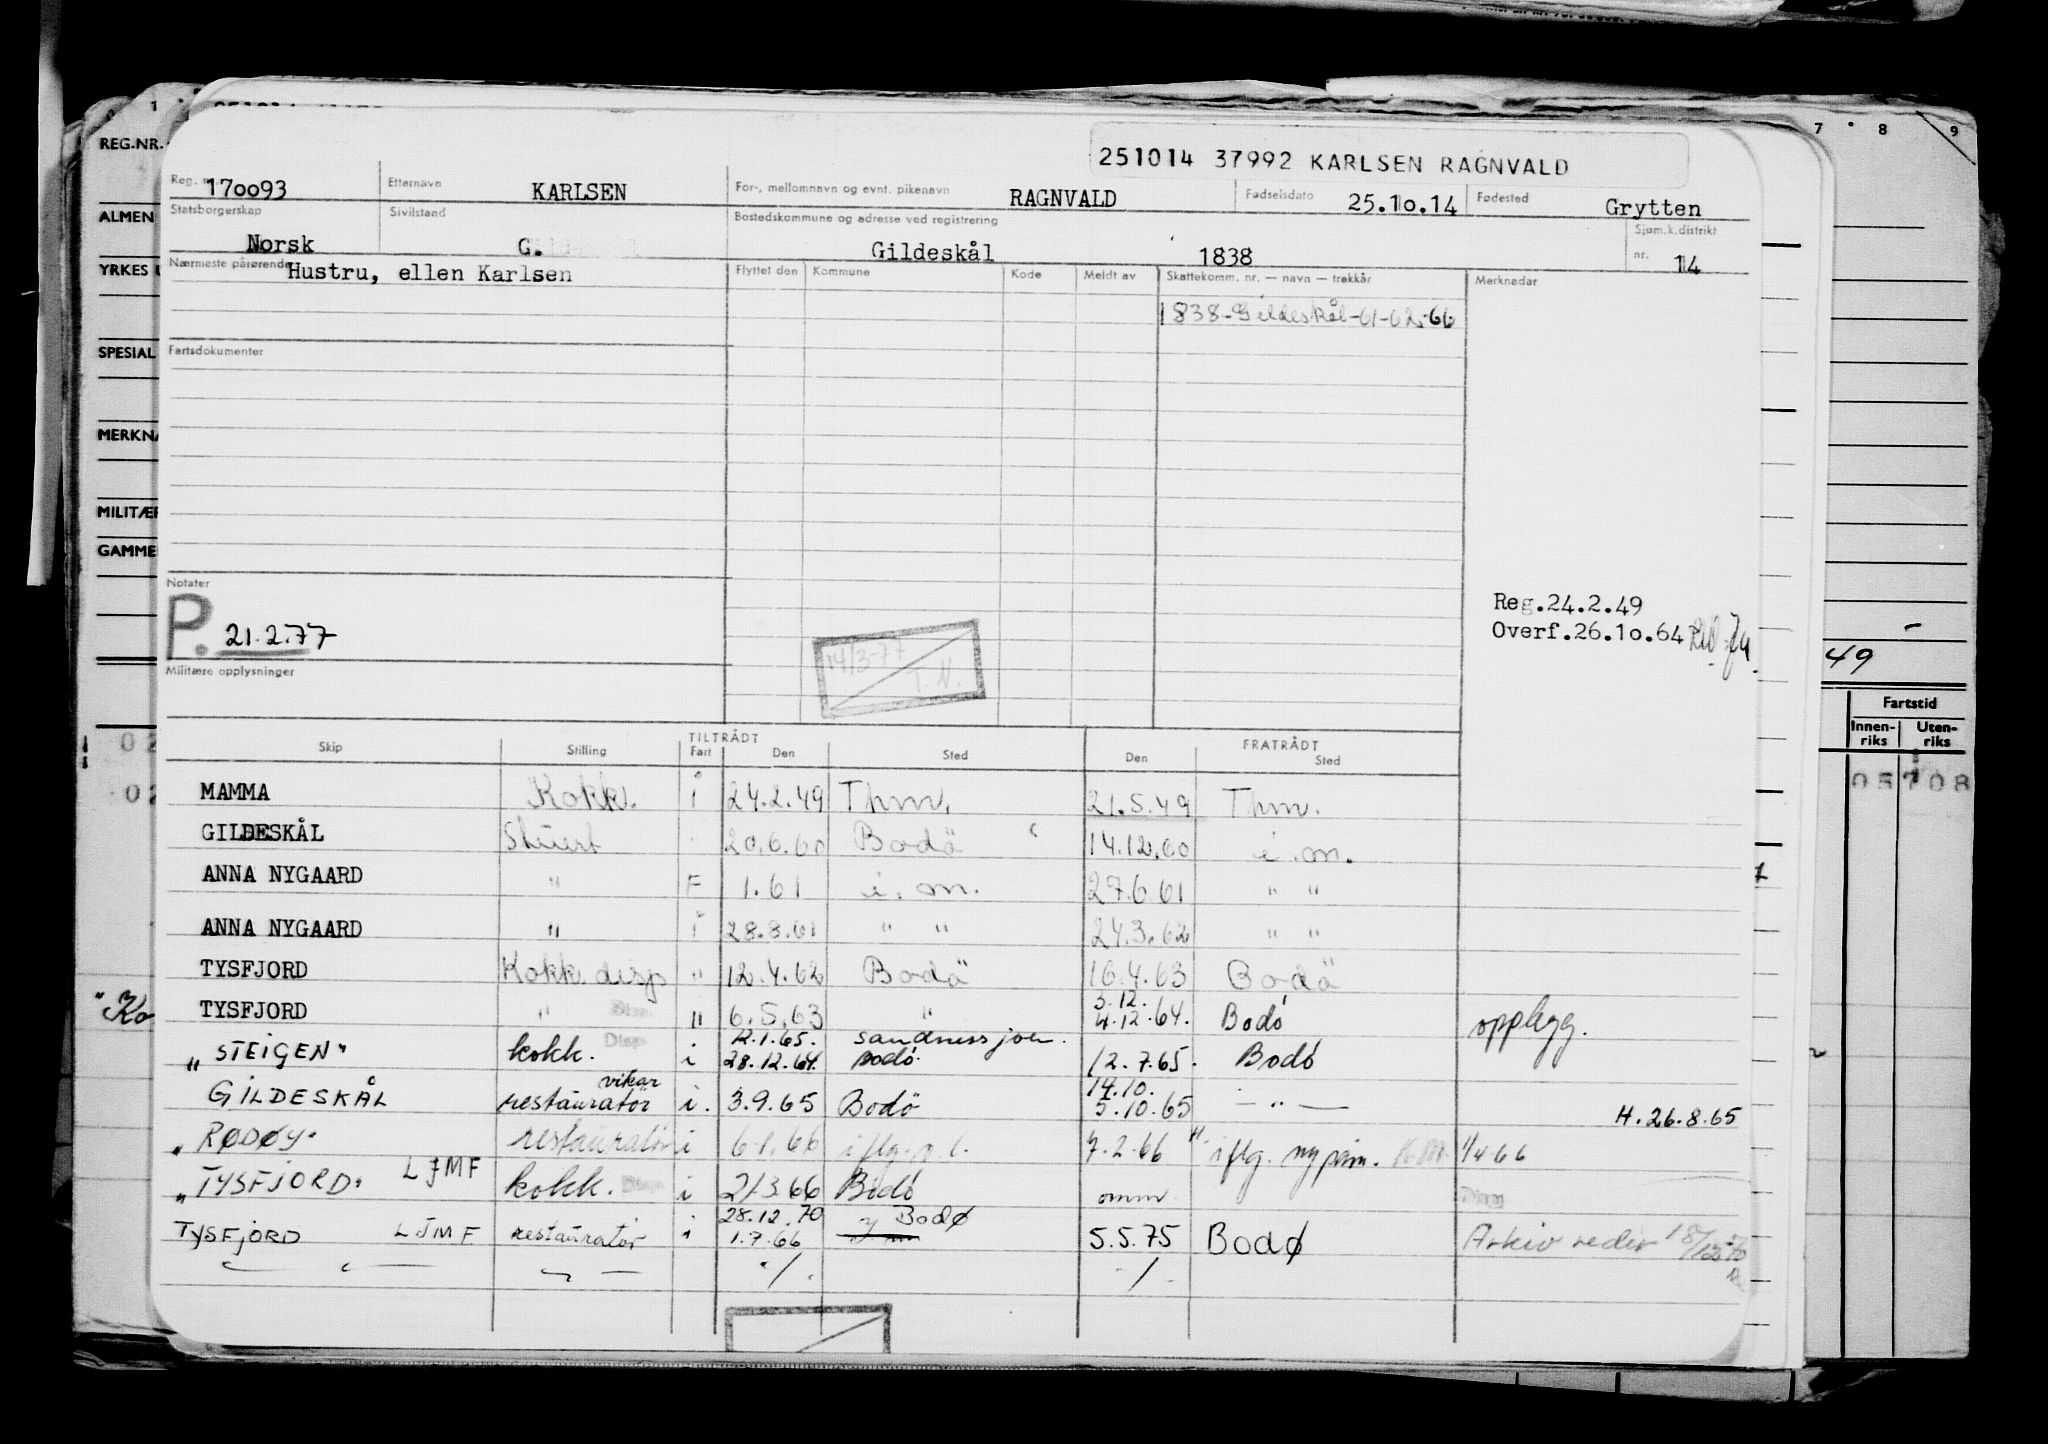 7 8 9
REG.NR.
251014 37992 KARLSEN RAGNVALD
Reg. nr. 170093 Etternavn KARLSEN For-, mellomnavn og evnt. pikenavn RAGNVALD Fødselsdato 25.10.14 Fødested Grytten
ALMEN
Statsborgerskap Norsk Sivilstand G. Bostedskommune og adresse ved registrering Gildeskål 1838 Sjøm.k.distrikt nr. 14
YRKES
Nærmeste pårørende Hustru, ellen Karlsen Flyttet den Kommune Kode Meldt av Skattekomm. nr. — navn — trekkår Merknader
1838-Gildeskål-61-62-66
SPESIAL
Fartsdokumenter
MERKNA
MILITÆR
GAMME
Notater
P. 21.2.77
Reg.24.2.49
Overf.26.10.64
14/3-77
T. N.
Militære opplysninger
49
Fartstid
Innen-riks Uten-riks
05708
Skip Stilling TILTRÅDT Fart Den Sted FRATRÅDT Den Sted
MAMMA Kokk. i 24.2.49 Thm. 21.5.49 Thm.
GILDESKÅL Stuert 20.6.60 Bodö 14.12.60 i. om.
ANNA NYGAARD " F 1.61 i. om. 27.6.61 " "
ANNA NYGAARD " i 28.8.61 " " 24.3.62 " "
TYSFJORD Kokk. disp " 12.4.62 Bodö 16.4.63 Bodö
TYSFJORD " Disp. " 6.5.63 " 3.12. 4.12.64. Bodó opplegg.
"STEIGEN" kokk. Disp. i 12.1.65. 28.12.64. Sandnessjøen. Bodó. 12.7.65. Bodó
GILDESKÅL vikar restauratör i. 3.9.65 Bodó 14.10. 5.10.65 — " — H. 26.8.65
"RØDØY" restauratör i 6.1.66 iflg. 7.2.66 iflg. 1/4-66
"TYSFJORD" LJMF kokk. Disp. i 21/3.66 Bodó omm
TYSFJORD LJMF restauratór i 28.12.70 1.7.66 Bodø 5.5.75 Bodø Arkiv reder